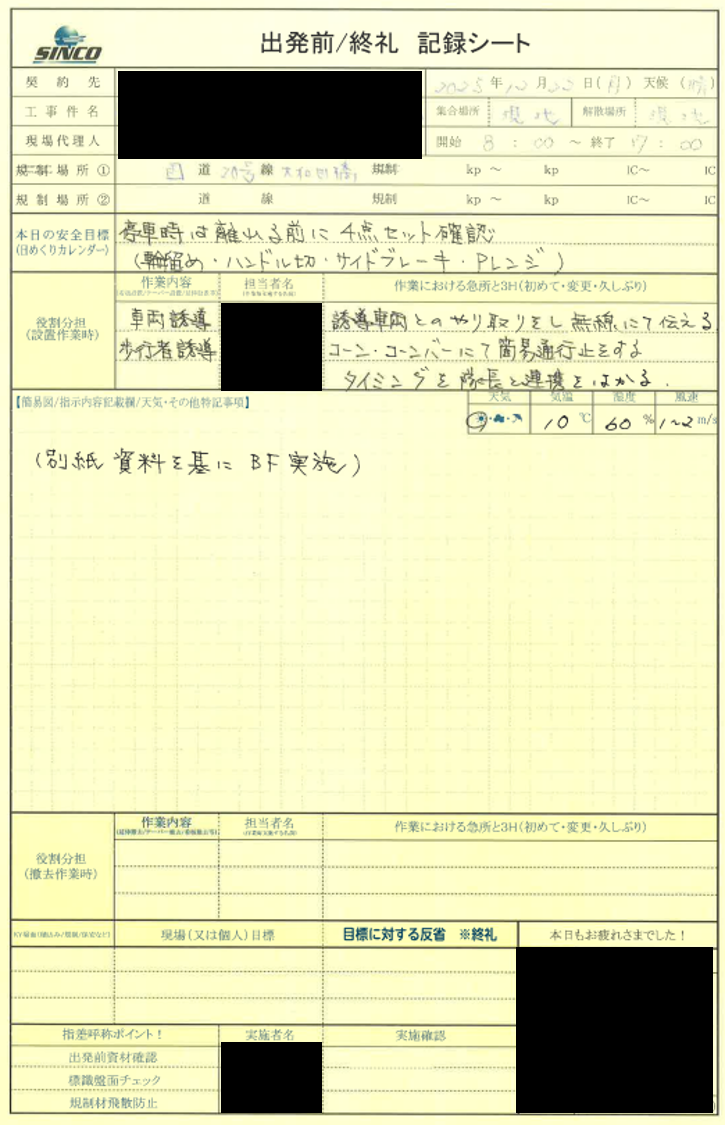 SINCO
出発前/終礼 記録シート
契約先 2025年12月22日(月) 天候(晴)
工事件名 集合場所 現地 解散場所 現地
現場代理人 開始 8:00 ~ 終了 17:00
規制場所① 国道 20号線 大和田橋 規制 kp ~ kp IC~ IC
規制場所② 道 線 規制 kp ~ kp IC~ IC
本日の安全目標 停車時は離れる前に4点セット確認
(日めくりカレンダー) (輪留め・ハンドル切・サイドブレーキ・Pレンジ)
作業内容 担当者名 作業における急所と3H(初めて・変更・久しぶり)
役割分担 車両誘導 誘導車両とのやり取りをし無線にて伝える
(設置作業時) 歩行者誘導 コーン・コーンバーにて簡易通行止をする
タイミングを隊長と連携をはかる.
【簡易図/指示内容記載欄/天気・その他特記事項】 天気 気温 湿度 風速
10℃ 60% 1~2m/s
(別紙資料を基にBF実施)
作業内容 担当者名 作業における急所と3H(初めて・変更・久しぶり)
役割分担
(撤去作業時)
現場(又は個人)目標 目標に対する反省 ※終礼 本日もお疲れさまでした!
指差呼称ポイント! 実施者名 実施確認
出発前資材確認
標識盤面チェック
規制材飛散防止